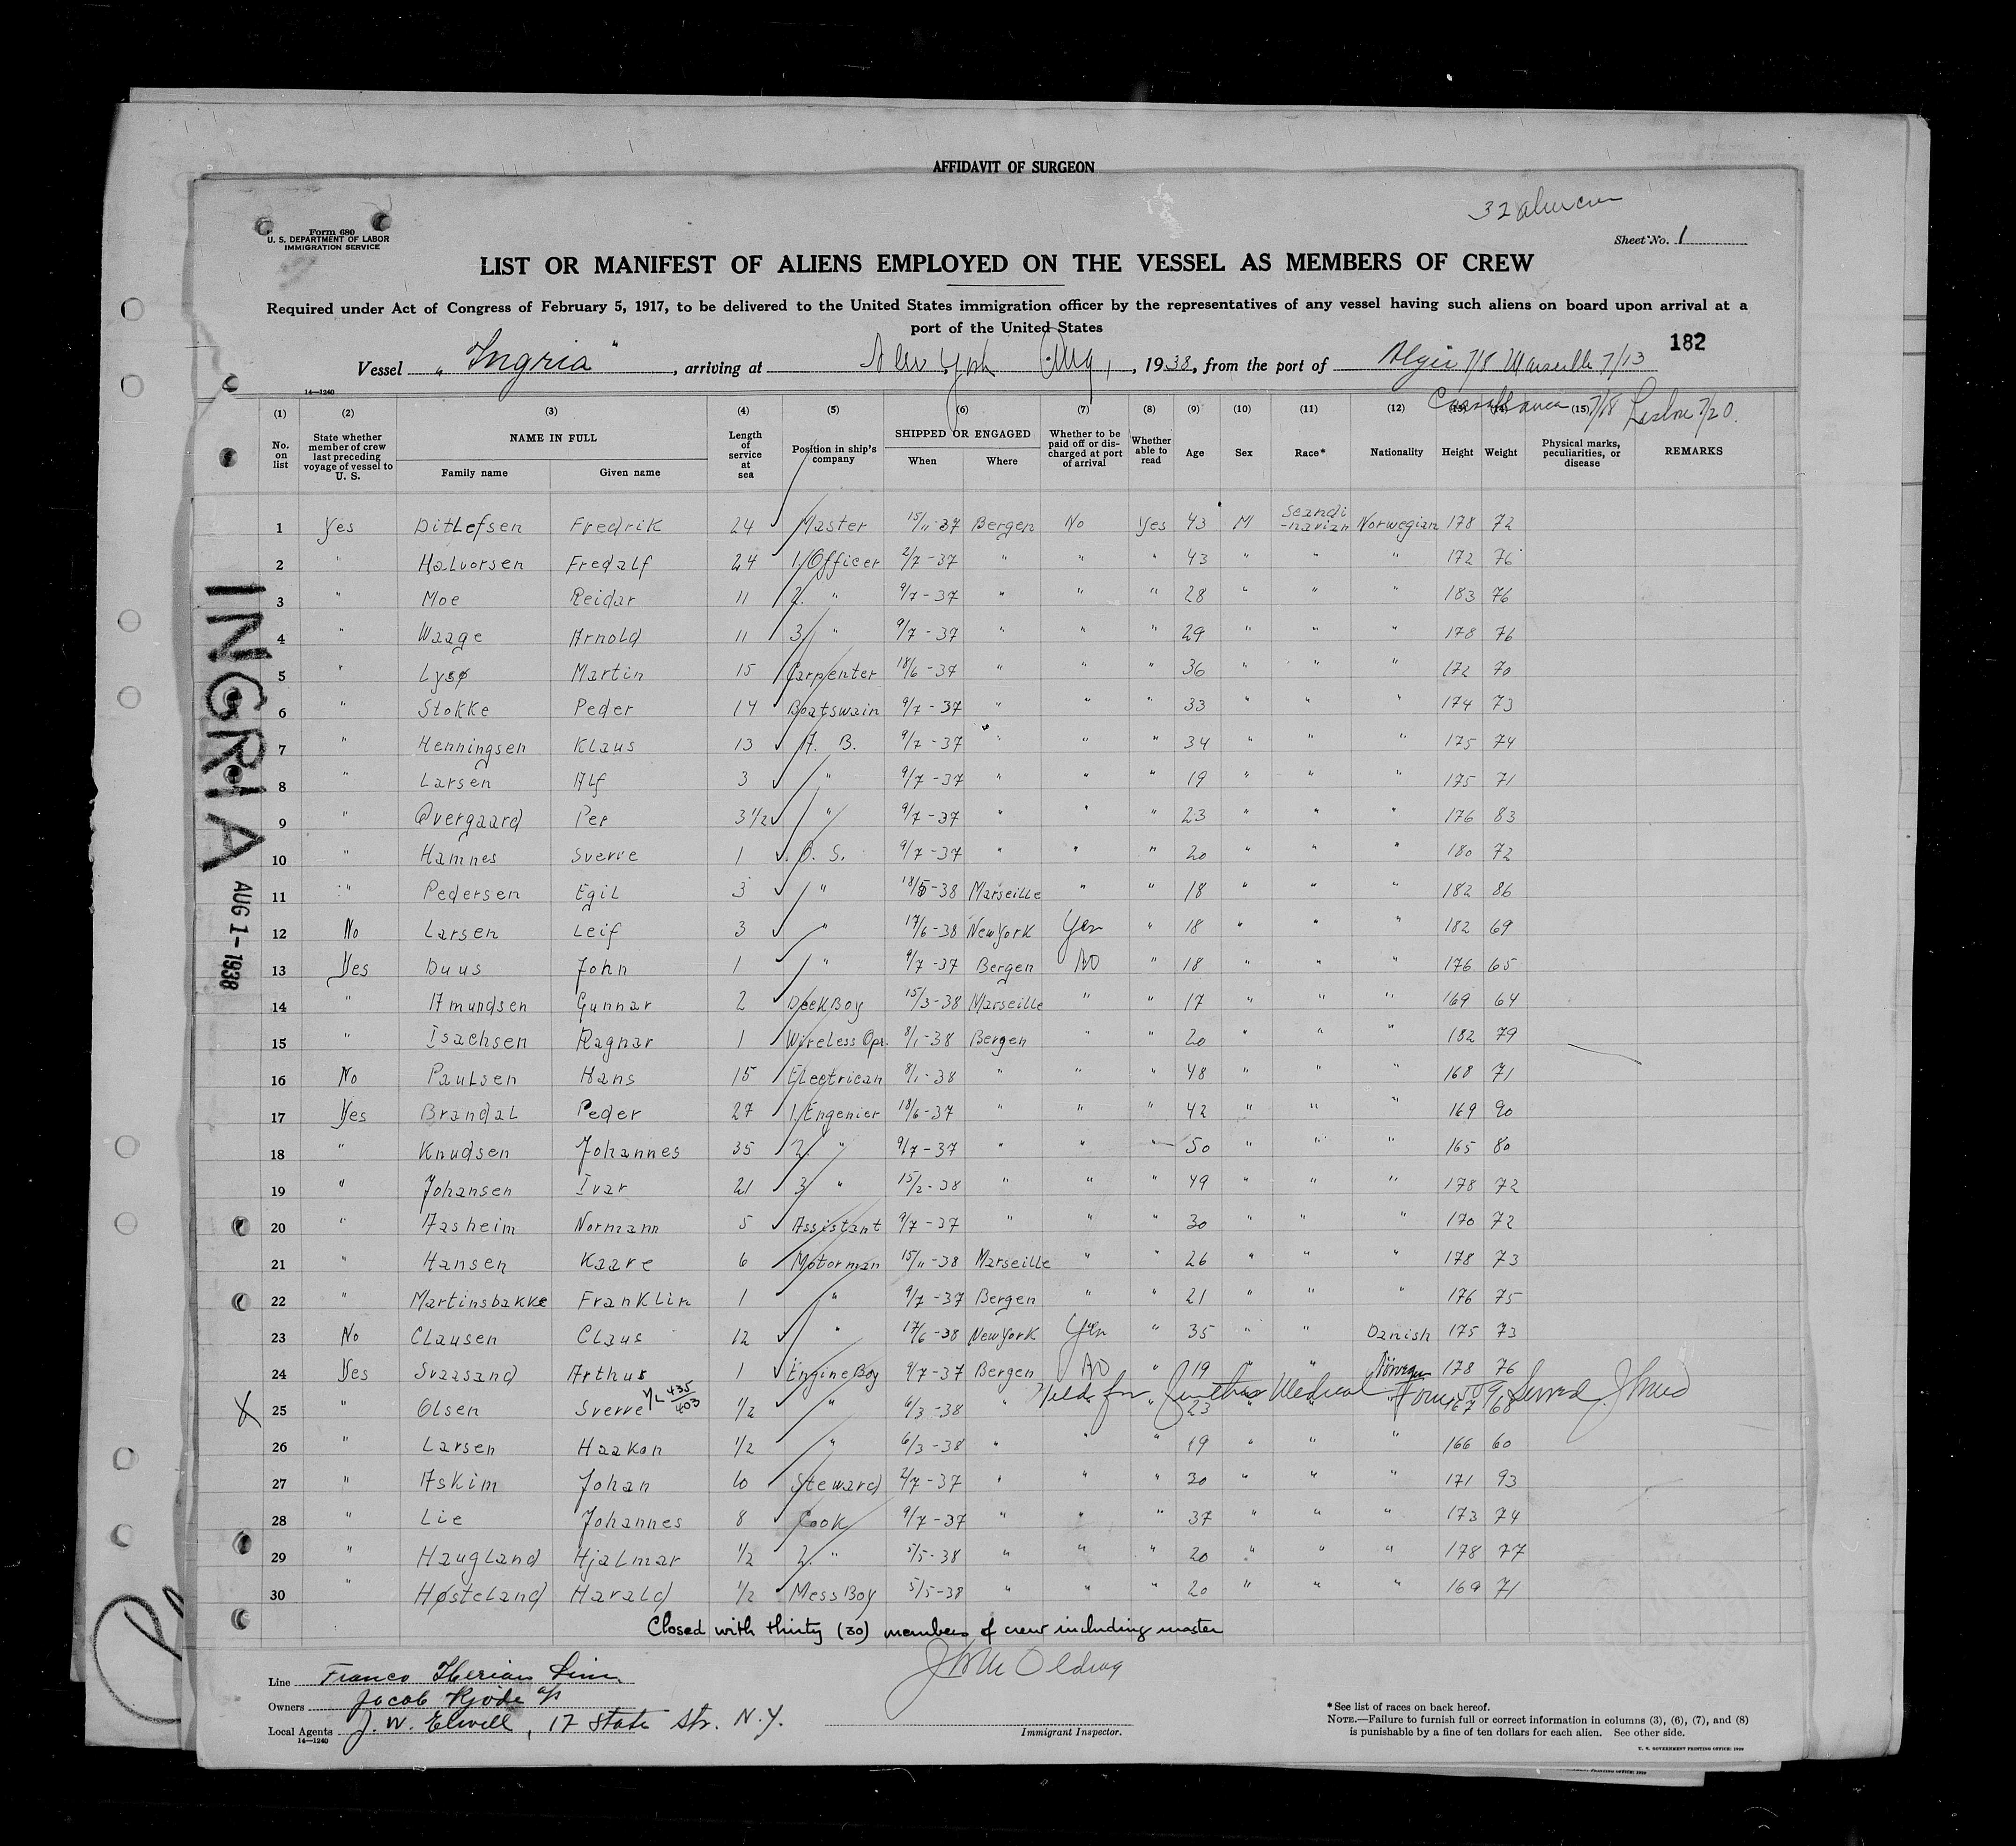 AFFIDAVIT OF SURGEON
32 alien crew
Form 680
U. S. DEPARTMENT OF LABOR
IMMIGRATION SERVICE
Sheet No. 1
LIST OR MANIFEST OF ALIENS EMPLOYED ON THE VESSEL AS MEMBERS OF CREW
Required under Act of Congress of February 5, 1917, to be delivered to the United States immigration officer by the representatives of any vessel having such aliens on board upon arrival at a
port of the United States
182
Vessel "Ingria", arriving at New York Aug 1, 1938, from the port of Algier 7/8 Marseille 7/13
Casablanca 7/18 Lisbon 7/20
14—1240
(1) (2) (3) (4) (5) (6) (7) (8) (9) (10) (11) (12) (13) (14) (15)
No. on list | State whether member of crew last preceding voyage of vessel to U. S. | NAME IN FULL Family name Given name | Length of service at sea | Position in ship's company | SHIPPED OR ENGAGED When Where | Whether to be paid off or discharged at port of arrival | Whether able to read | Age | Sex | Race* | Nationality | Height | Weight | Physical marks, peculiarities, or disease | REMARKS
1 Yes Ditlefsen Fredrik 24 Master 15/11-37 Bergen No Yes 43 M Scandi-navian Norwegian 178 72
2 " Halvorsen Fredalf 24 1. Officer 2/7-37 " " " 43 " " " 172 76
3 " Moe Reidar 11 2. " 9/7-37 " " " 28 " " " 183 76
4 " Waage Arnold 11 3. " 9/7-37 " " " 29 " " " 178 76
5 " Lysø Martin 15 Carpenter 18/6-37 " " " 36 " " " 172 70
6 " Stokke Peder 14 Boatswain 9/7-37 " " " 33 " " " 174 73
7 " Henningsen Klaus 13 A. B. 9/7-37 " " " 34 " " " 175 74
8 " Larsen Alf 3 " 9/7-37 " " " 19 " " " 175 71
9 " Øvergaard Per 3 1/2 " 9/7-37 " " " 23 " " " 176 83
10 " Hamnes Sverre 1 O. S. 9/7-37 " " " 20 " " " 180 72
11 " Pedersen Egil 3 " 18/5-38 Marseille " " 18 " " " 182 86
12 No Larsen Leif 3 " 17/6-38 New York Yes " 18 " " " 182 69
13 Yes Duus John 1 " 9/7-37 Bergen No " 18 " " " 176 65
14 " Amundsen Gunnar 2 Deck Boy 15/3-38 Marseille " " 17 " " " 169 64
15 " Isachsen Ragnar 1 Wireless Opr. 8/1-38 Bergen " " 20 " " " 182 79
16 No Paulsen Hans 15 Electrican 8/1-38 " " " 48 " " " 168 71
17 Yes Brandal Peder 27 1. Engenier 18/6-37 " " " 42 " " " 169 90
18 " Knudsen Johannes 35 2. " 9/7-37 " " " 50 " " " 165 80
19 " Johansen Ivar 21 3. " 15/2-38 " " " 49 " " " 178 72
20 " Aasheim Normann 5 Assistant 9/7-37 " " " 30 " " " 170 72
21 " Hansen Kaare 6 Motorman 15/11-38 Marseille " " 26 " " " 178 73
22 " Martinsbakke Franklin 1 " 9/7-37 Bergen " " 21 " " " 176 75
23 No Clausen Claus 12 " 17/6-38 New York Yes " 35 " " Danish 175 73
24 Yes Svaasand Arthur 1 Engine Boy 9/7-37 Bergen No " 19 " " Norwegian 178 76
Held for further Medical Form 509 Served
X 25 " Olsen Sverre 435 403 1/2 " 6/3-38 " " 23 167 68
26 " Larsen Haakon 1/2 " 6/3-38 " " " 19 " " " 166 60
27 " Askim Johan 10 Steward 2/7-37 " " " 30 " " " 171 93
28 " Lie Johannes 8 Cook 9/7-37 " " " 37 " " " 173 74
29 " Haugland Hjalmar 1/2 2. " 5/5-38 " " " 20 " " " 178 77
30 " Høsteland Harald 1/2 Mess Boy 5/5-38 " " " 20 " " " 169 71
INGRIA
AUG 1-1938
Closed with thirty (30) members of crew including master
Line Franco Iberian Line
Owners Jacob Kjøde A/S
Local Agents J. W. Elwell, 17 State Str. N.Y.
14—1240
Immigrant Inspector.
*See list of races on back hereof.
NOTE.—Failure to furnish full or correct information in columns (3), (6), (7), and (8)
is punishable by a fine of ten dollars for each alien. See other side.